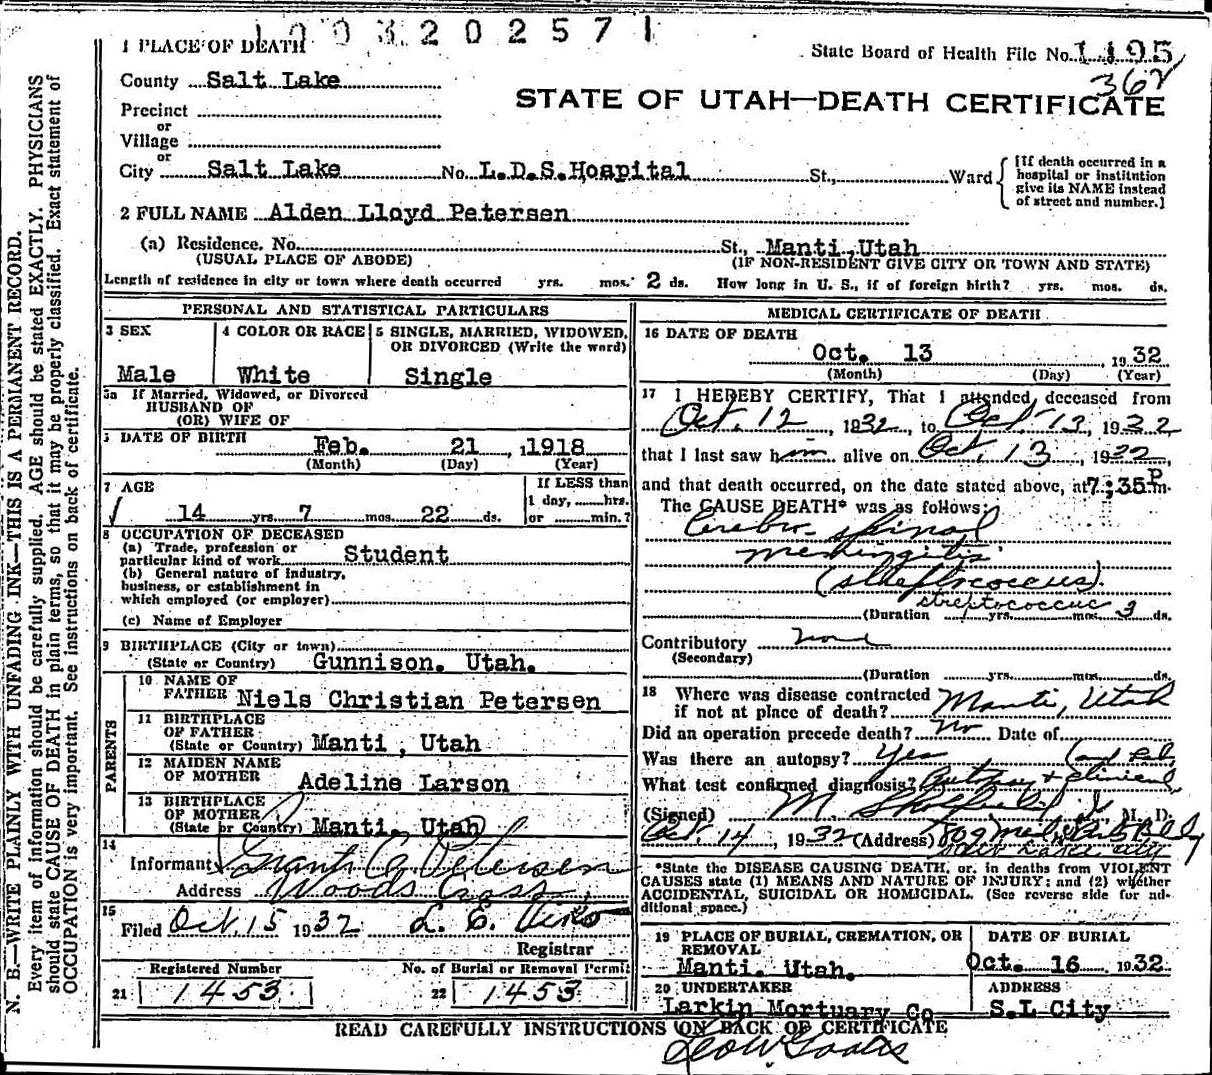 1003202571
1 PLACE OF DEATH
State Board of Health File No. 1495
362
County Salt Lake
STATE OF UTAH—DEATH CERTIFICATE
Precinct
or
Village
or
City Salt Lake No. L.D.S.Hospital St., Ward {[If death occurred in a hospital or institution give its NAME instead of street and number.]
2 FULL NAME Alden Lloyd Petersen
(a) Residence. No. St., Manti, Utah
(USUAL PLACE OF ABODE) (IF NON-RESIDENT GIVE CITY OR TOWN AND STATE)
Length of residence in city or town where death occurred yrs. mos. 2 ds. How long in U. S., if of foreign birth? yrs. mos. ds.
PERSONAL AND STATISTICAL PARTICULARS
3 SEX 4 COLOR OR RACE 5 SINGLE, MARRIED, WIDOWED,
OR DIVORCED (Write the word)
Male White Single
5a If Married, Widowed, or Divorced
HUSBAND OF
(OR) WIFE OF
DATE OF BIRTH Feb. 21, 1918
(Month) (Day) (Year)
7 AGE If LESS than
1 day, hrs.
14 yrs. 7 mos. 22 ds. or min.?
8 OCCUPATION OF DECEASED
(a) Trade, profession or
particular kind of work Student
(b) General nature of industry,
business, or establishment in
which employed (or employer)
(c) Name of Employer
9 BIRTHPLACE (City or town)
(State or Country) Gunnison. Utah.
PARENTS
10 NAME OF
FATHER Niels Christian Petersen
11 BIRTHPLACE
OF FATHER
(State or Country) Manti, Utah
12 MAIDEN NAME
OF MOTHER Adeline Larson
13 BIRTHPLACE
OF MOTHER
(State or Country) Manti, Utah
14
Informant Grant C Petersen
Address Woods Cross
15
Filed Oct. 15 1932 L. E.
Registrar
Registered Number No. of Burial or Removal Permit
21 1453 22 1453
MEDICAL CERTIFICATE OF DEATH
16 DATE OF DEATH
Oct. 13 1932
(Month) (Day) (Year)
17 I HEREBY CERTIFY, That I attended deceased from
Oct. 12, 1932, to Oct 13, 1932
that I last saw him alive on Oct, 13, 1932,
and that death occurred, on the date stated above, at 7;35 P m.
The CAUSE DEATH* was as follows:
Cerebro-spinal
meningitis
(streptococcus).
streptococcus
(Duration yrs. mos. 3 ds.
Contributory none
(Secondary)
(Duration yrs. mos. ds.
18 Where was disease contracted
if not at place of death? Manti, Utah
Did an operation precede death? No Date of
Was there an autopsy? Yes (and Lab.
What test confirmed diagnosis? Autopsy + clinical
(Signed) M. M. D.
Oct. 14, 1932 (Address) 809 Med
Salt Lake City
*State the DISEASE CAUSING DEATH, or, in deaths from VIOLENT
CAUSES state (1) MEANS AND NATURE OF INJURY; and (2) whether
ACCIDENTAL, SUICIDAL OR HOMICIDAL. (See reverse side for additional space.)
19 PLACE OF BURIAL, CREMATION, OR
REMOVAL
Manti. Utah.
DATE OF BURIAL
Oct. 16 1932
20 UNDERTAKER
Larkin Mortuary Co
ADDRESS
S.L City
READ CAREFULLY INSTRUCTIONS ON BACK OF CERTIFICATE
N. B.—WRITE PLAINLY WITH UNFADING INK—THIS IS A PERMANENT RECORD.
Every item of information should be carefully supplied. AGE should be stated EXACTLY. PHYSICIANS
should state CAUSE OF DEATH in plain terms, so that it may be properly classified. Exact statement of
OCCUPATION is very important. See instructions on back of certificate.